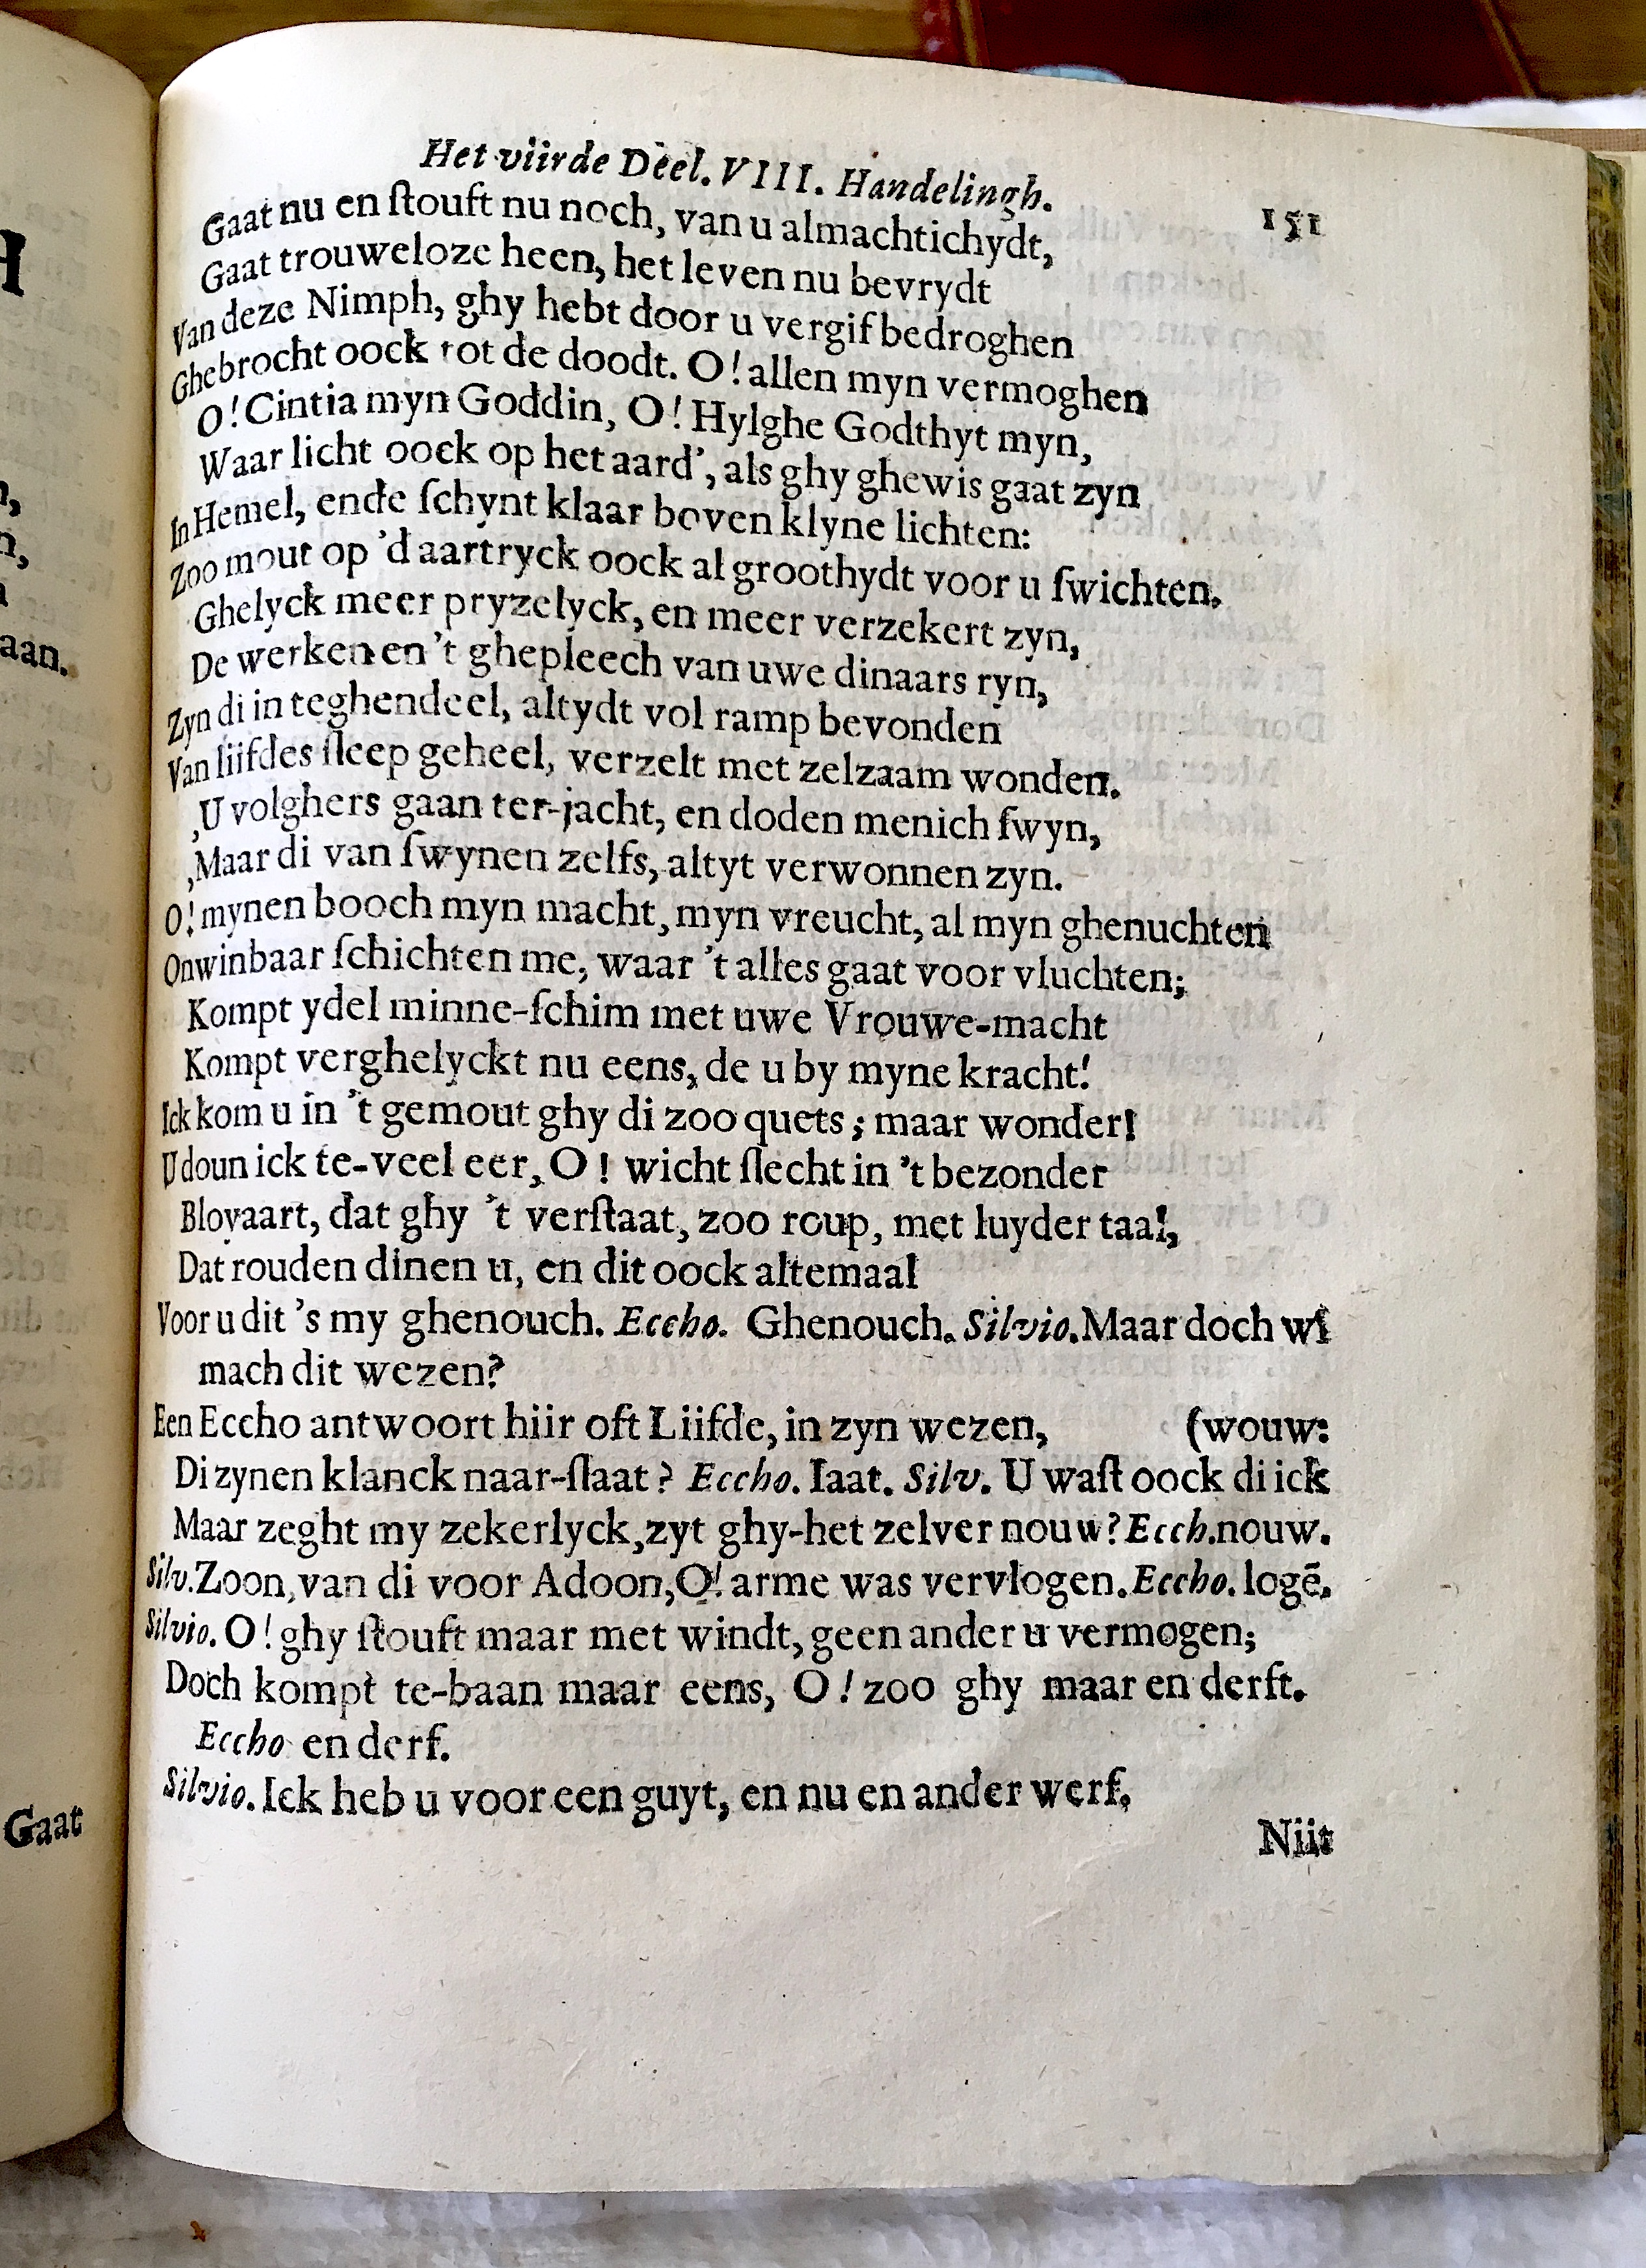 Het viirde Deel. VIII. Handelingh. 151
Gaat nu en ſtouft nu noch, van u almachtichydt,
Gaat trouweloze heen, het leven nu bevrydt
Van deze Nimph, ghy hebt door u vergif bedroghen
Ghebrocht oock tot de doodt. O! allen myn vermoghen
O! Cintia myn Goddin, O! Hylghe Godthyt myn,
Waar licht oock op het aard', als ghy ghewis gaat zyn
In Hemel, ende ſchynt klaar boven klyne lichten:
Zoo mout op 'd aartryck oock al groothydt voor u ſwichten.
Ghelyck meer pryzelyck, en meer verzekert zyn,
De werken en 't ghepleech van uwe dinaars ryn,
Zyn di in teghendeel, altydt vol ramp bevonden
Van liifdes ſleep geheel, verzelt met zelzaam wonden.
,U volghers gaan ter-jacht, en doden menich ſwyn,
,Maar di van ſwynen zelfs, altyt verwonnen zyn.
O! mynen booch myn macht, myn vreucht, al myn ghenuchten
Onwinbaar ſchichten me, waar 't alles gaat voor vluchten;
Kompt ydel minne-ſchim met uwe Vrouwe-macht
Kompt verghelyckt nu eens, de u by myne kracht!
Ick kom u in 't gemout ghy di zoo quets; maar wonder!
U doun ick te-veel eer, O! wicht ſlecht in 't bezonder
Blovaart, dat ghy 't verſtaat, zoo roup, met luyder taal,
Dat rouden dinen u, en dit oock altemaal
Voor u dit 's my ghenouch. Eccho. Ghenouch. Silvio. Maar doch wi
mach dit wezen?
Een Eccho antwoort hiir oft Liifde, in zyn wezen, (wouw:
Di zynen klanck naar-ſlaat? Eccho. Iaat. Silv. U waſt oock di ick
Maar zeght my zekerlyck, zyt ghy-het zelver nouw? Ecch. nouw.
Silv. Zoon, van di voor Adoon, O! arme was vervlogen. Eccho. logē.
Silvio. O! ghy ſtouft maar met windt, geen ander u vermogen;
Doch kompt te-baan maar eens, O! zoo ghy maar en derft.
Eccho en derf.
Silvio. Ick heb u voor een guyt, en nu en ander werf.
Niit
H
n,
n,
aan.
Gaat